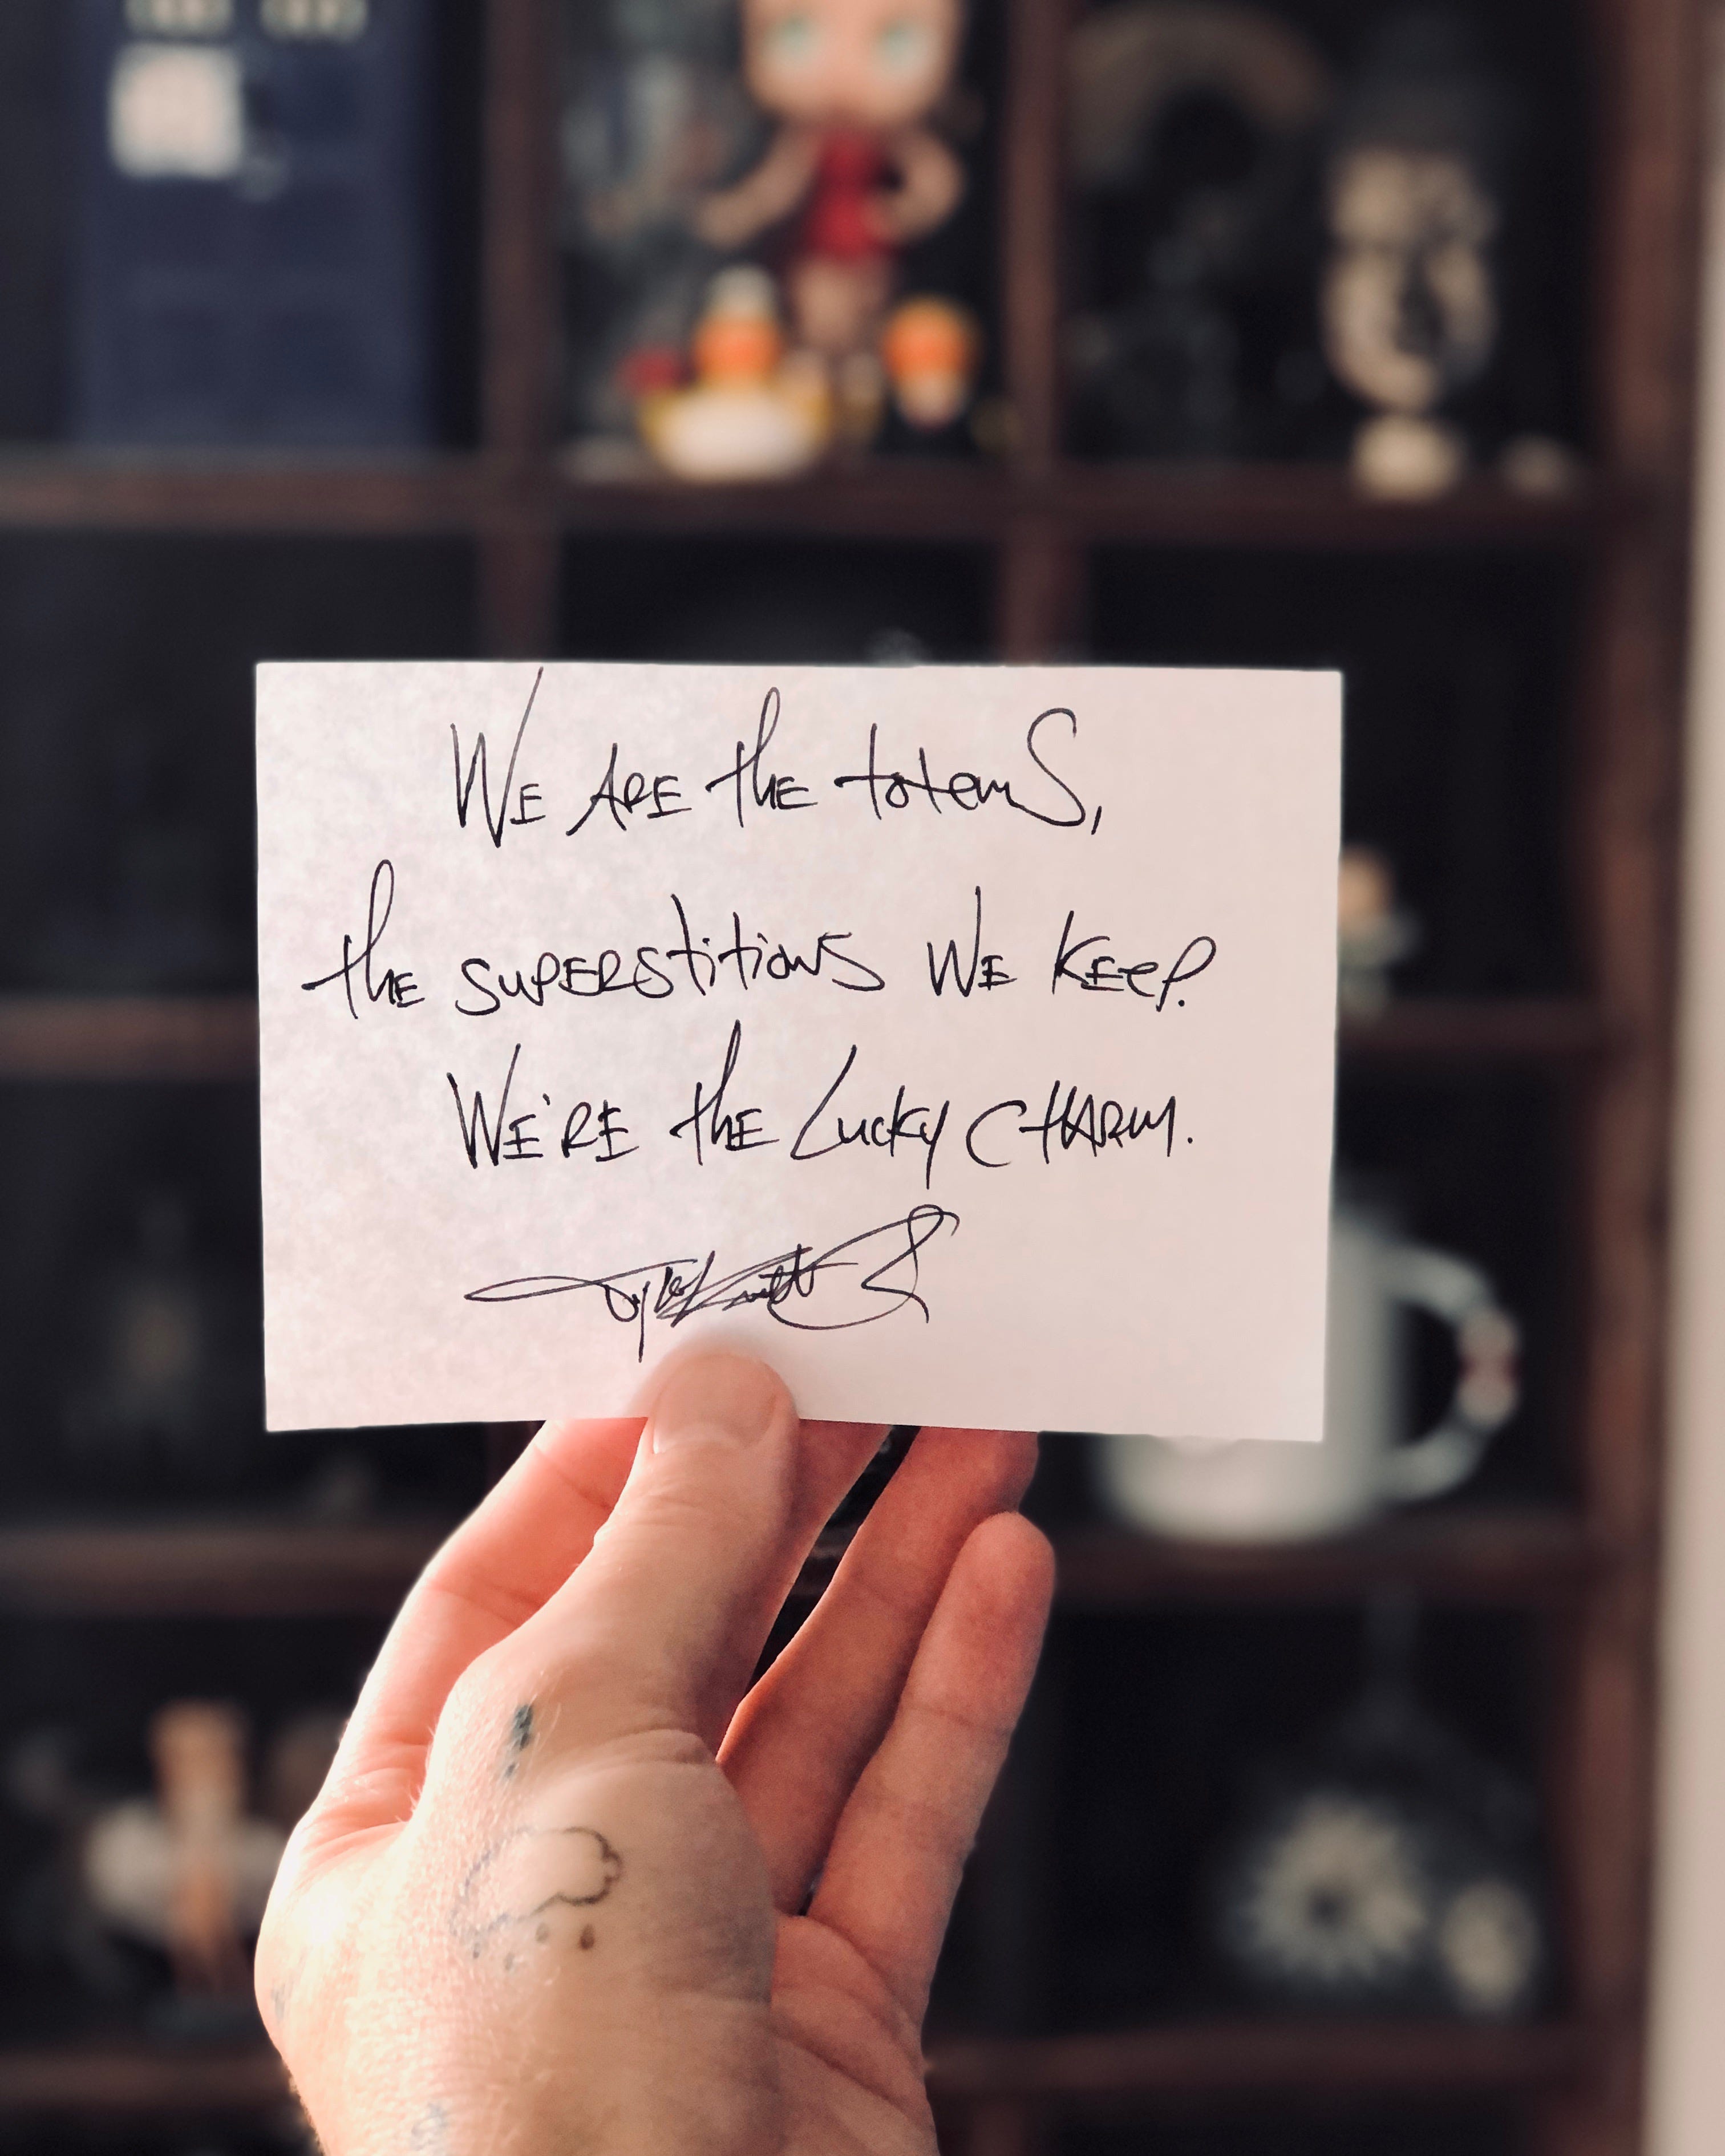 We are the totems,
the superstitions we keep.
We're the Lucky charm.